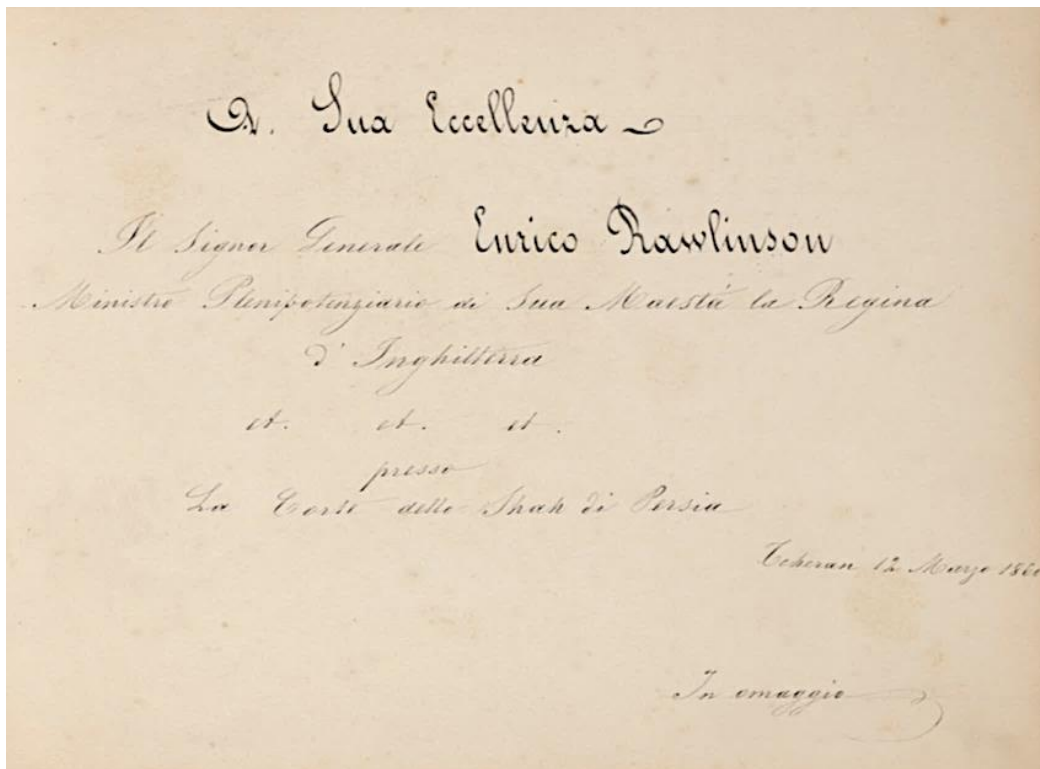 A. Sua Eccellenza
Il Signor Generale Enrico Rawlinson
Ministro Plenipotenziario di Sua Maestà la Regina
d'Inghilterra
et. et. et.
presso
La Corte dello Shah di Persia
Teheran 12 Marzo 1860
In omaggio